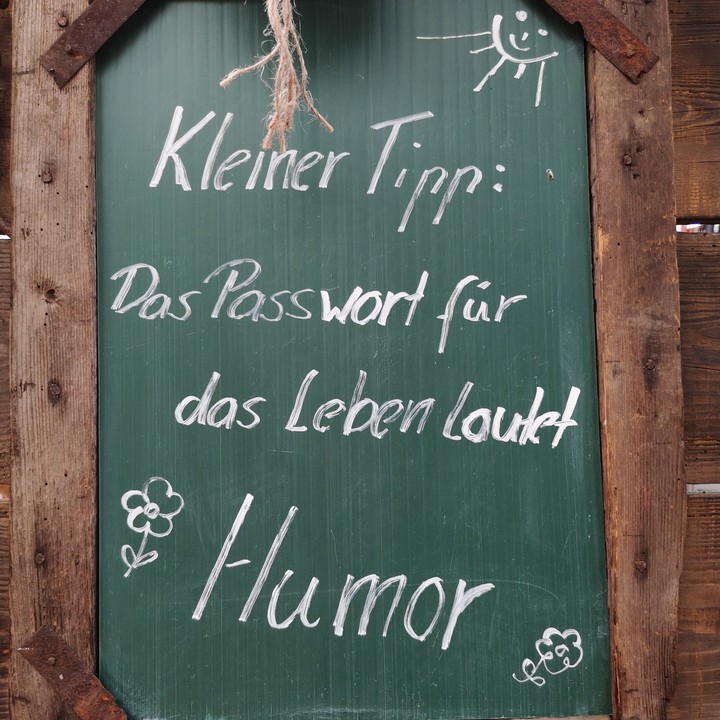 Kleiner Tipp:
Das Passwort für
das Leben lautet
Humor